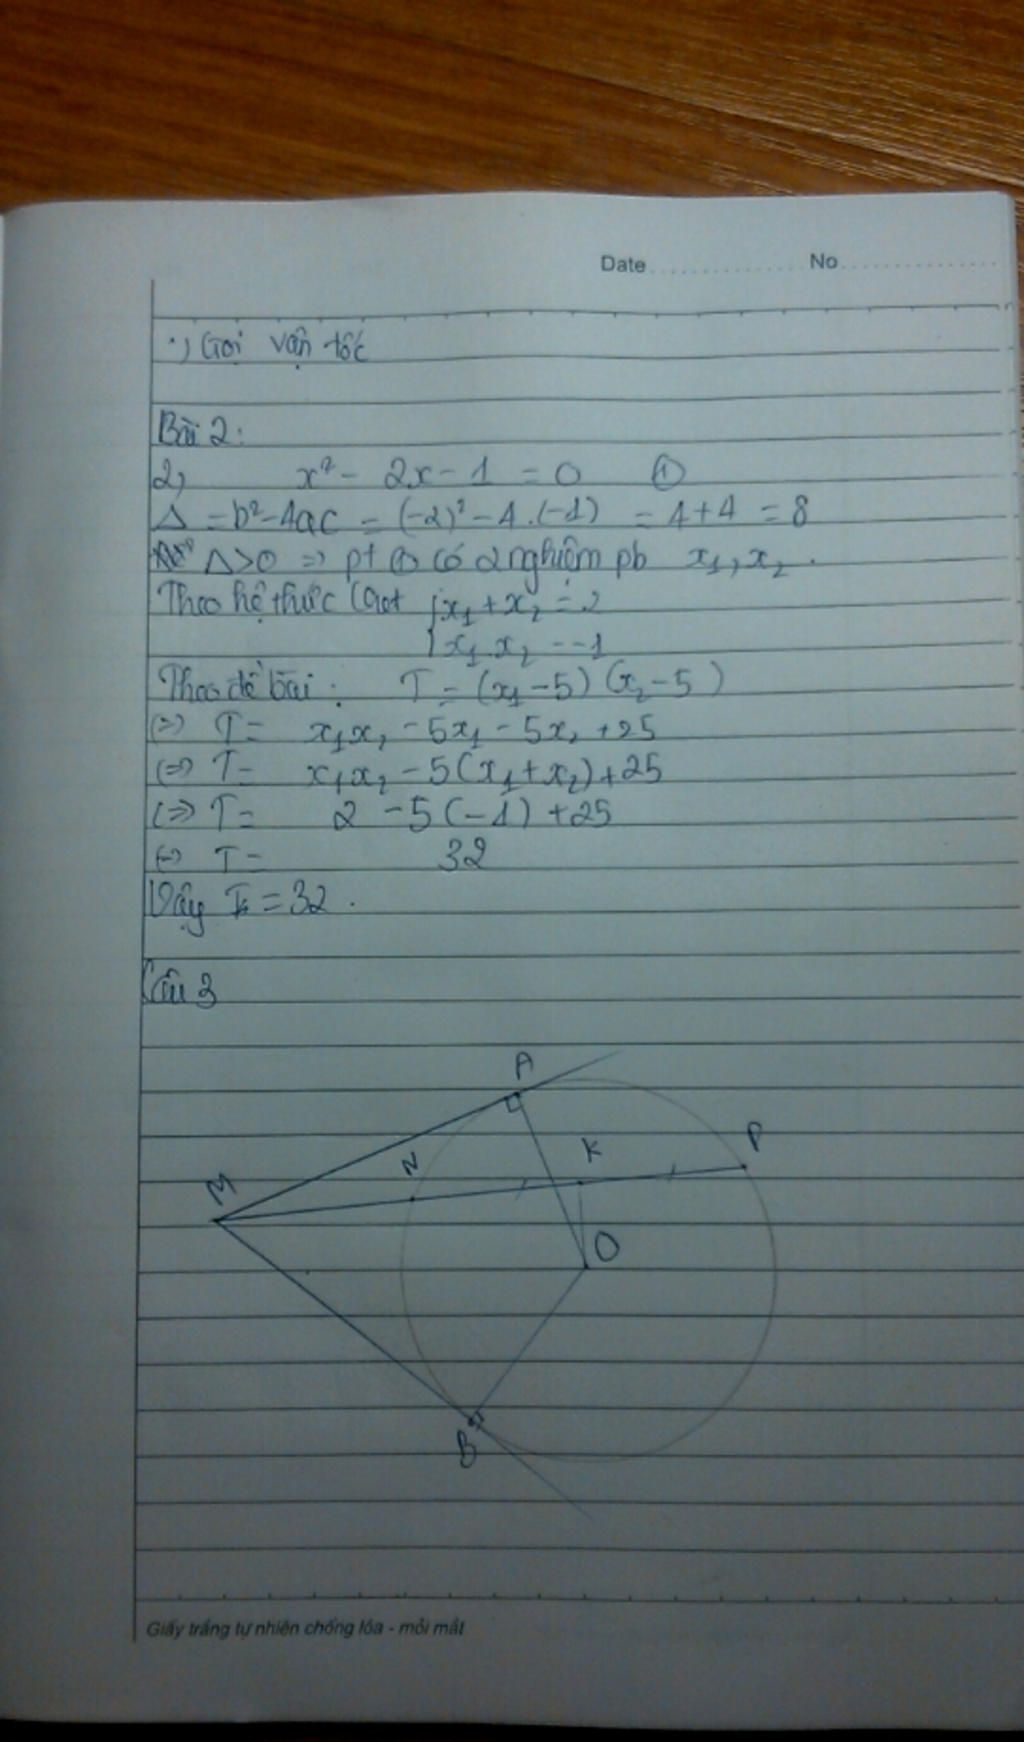 Date No
1) Gọi vận tốc
Bài 2:
2) x² - 2x - 1 = 0 ①
Δ = b² - 4ac = (-2)² - 4.(-1) = 4 + 4 = 8
Δ > 0 => pt ① có 2 nghiệm pb x₁, x₂.
Theo hệ thức { x₁ + x₂ = 2
x₁.x₂ = -1
Theo đề bài: T = (x₁ - 5)(x₂ - 5)
(=) T = x₁x₂ - 5x₁ - 5x₂ + 25
(=) T = x₁x₂ - 5(x₁ + x₂) + 25
(=) T = 2 - 5(-1) + 25
(=) T = 32
Vậy = 32.
Câu 3
A
P
K
N
M
O
B
Giấy trắng tự nhiên chống lóa - mỏi mắt